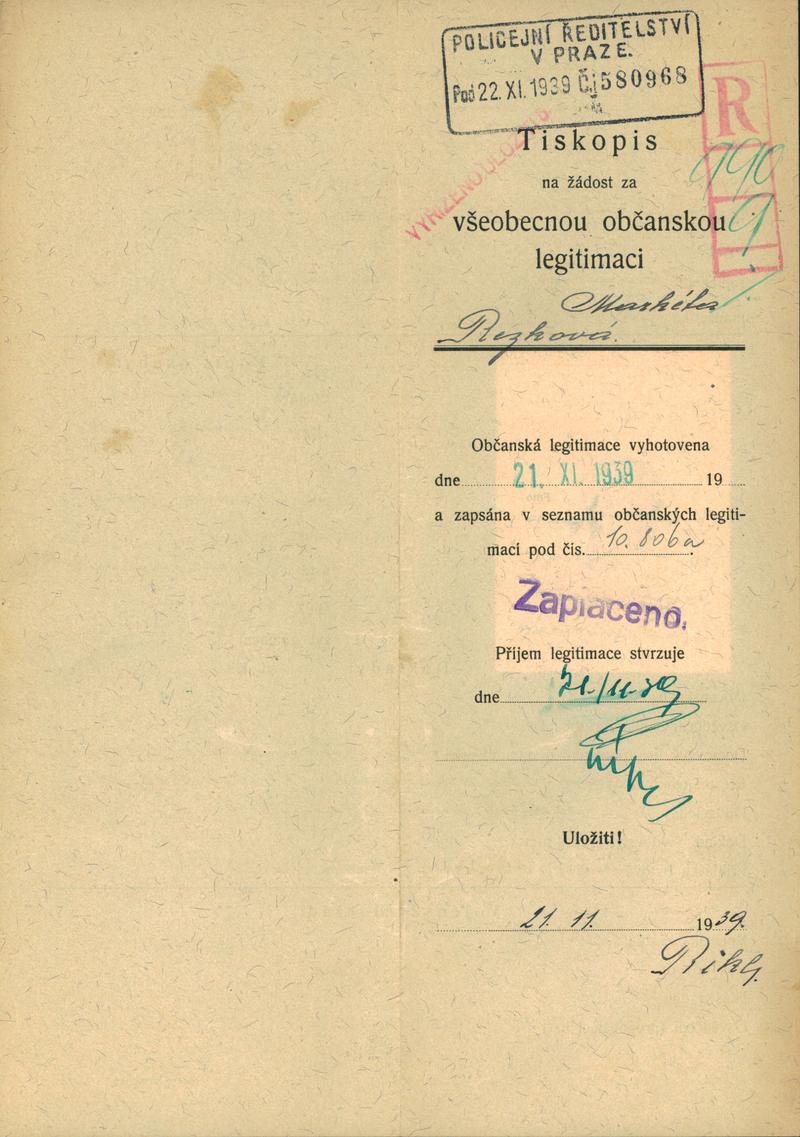 POLICEJNÍ ŘEDITELSTVÍ
V PRAZE.
Poš 22. XI. 1939 Č.j 580968
R
VYŘÍZENO ULOŽENO
Tiskopis
990
na žádost za
9
všeobecnou občanskou
legitimaci
Markéta
Rezková.
Občanská legitimace vyhotovena
dne 21. XI. 1939 19
a zapsána v seznamu občanských legiti-
mací pod čís. 10.806a
Zaplaceno.
Příjem legitimace stvrzuje
dne 21./11.39
Uložiti!
21. 11. 1939.